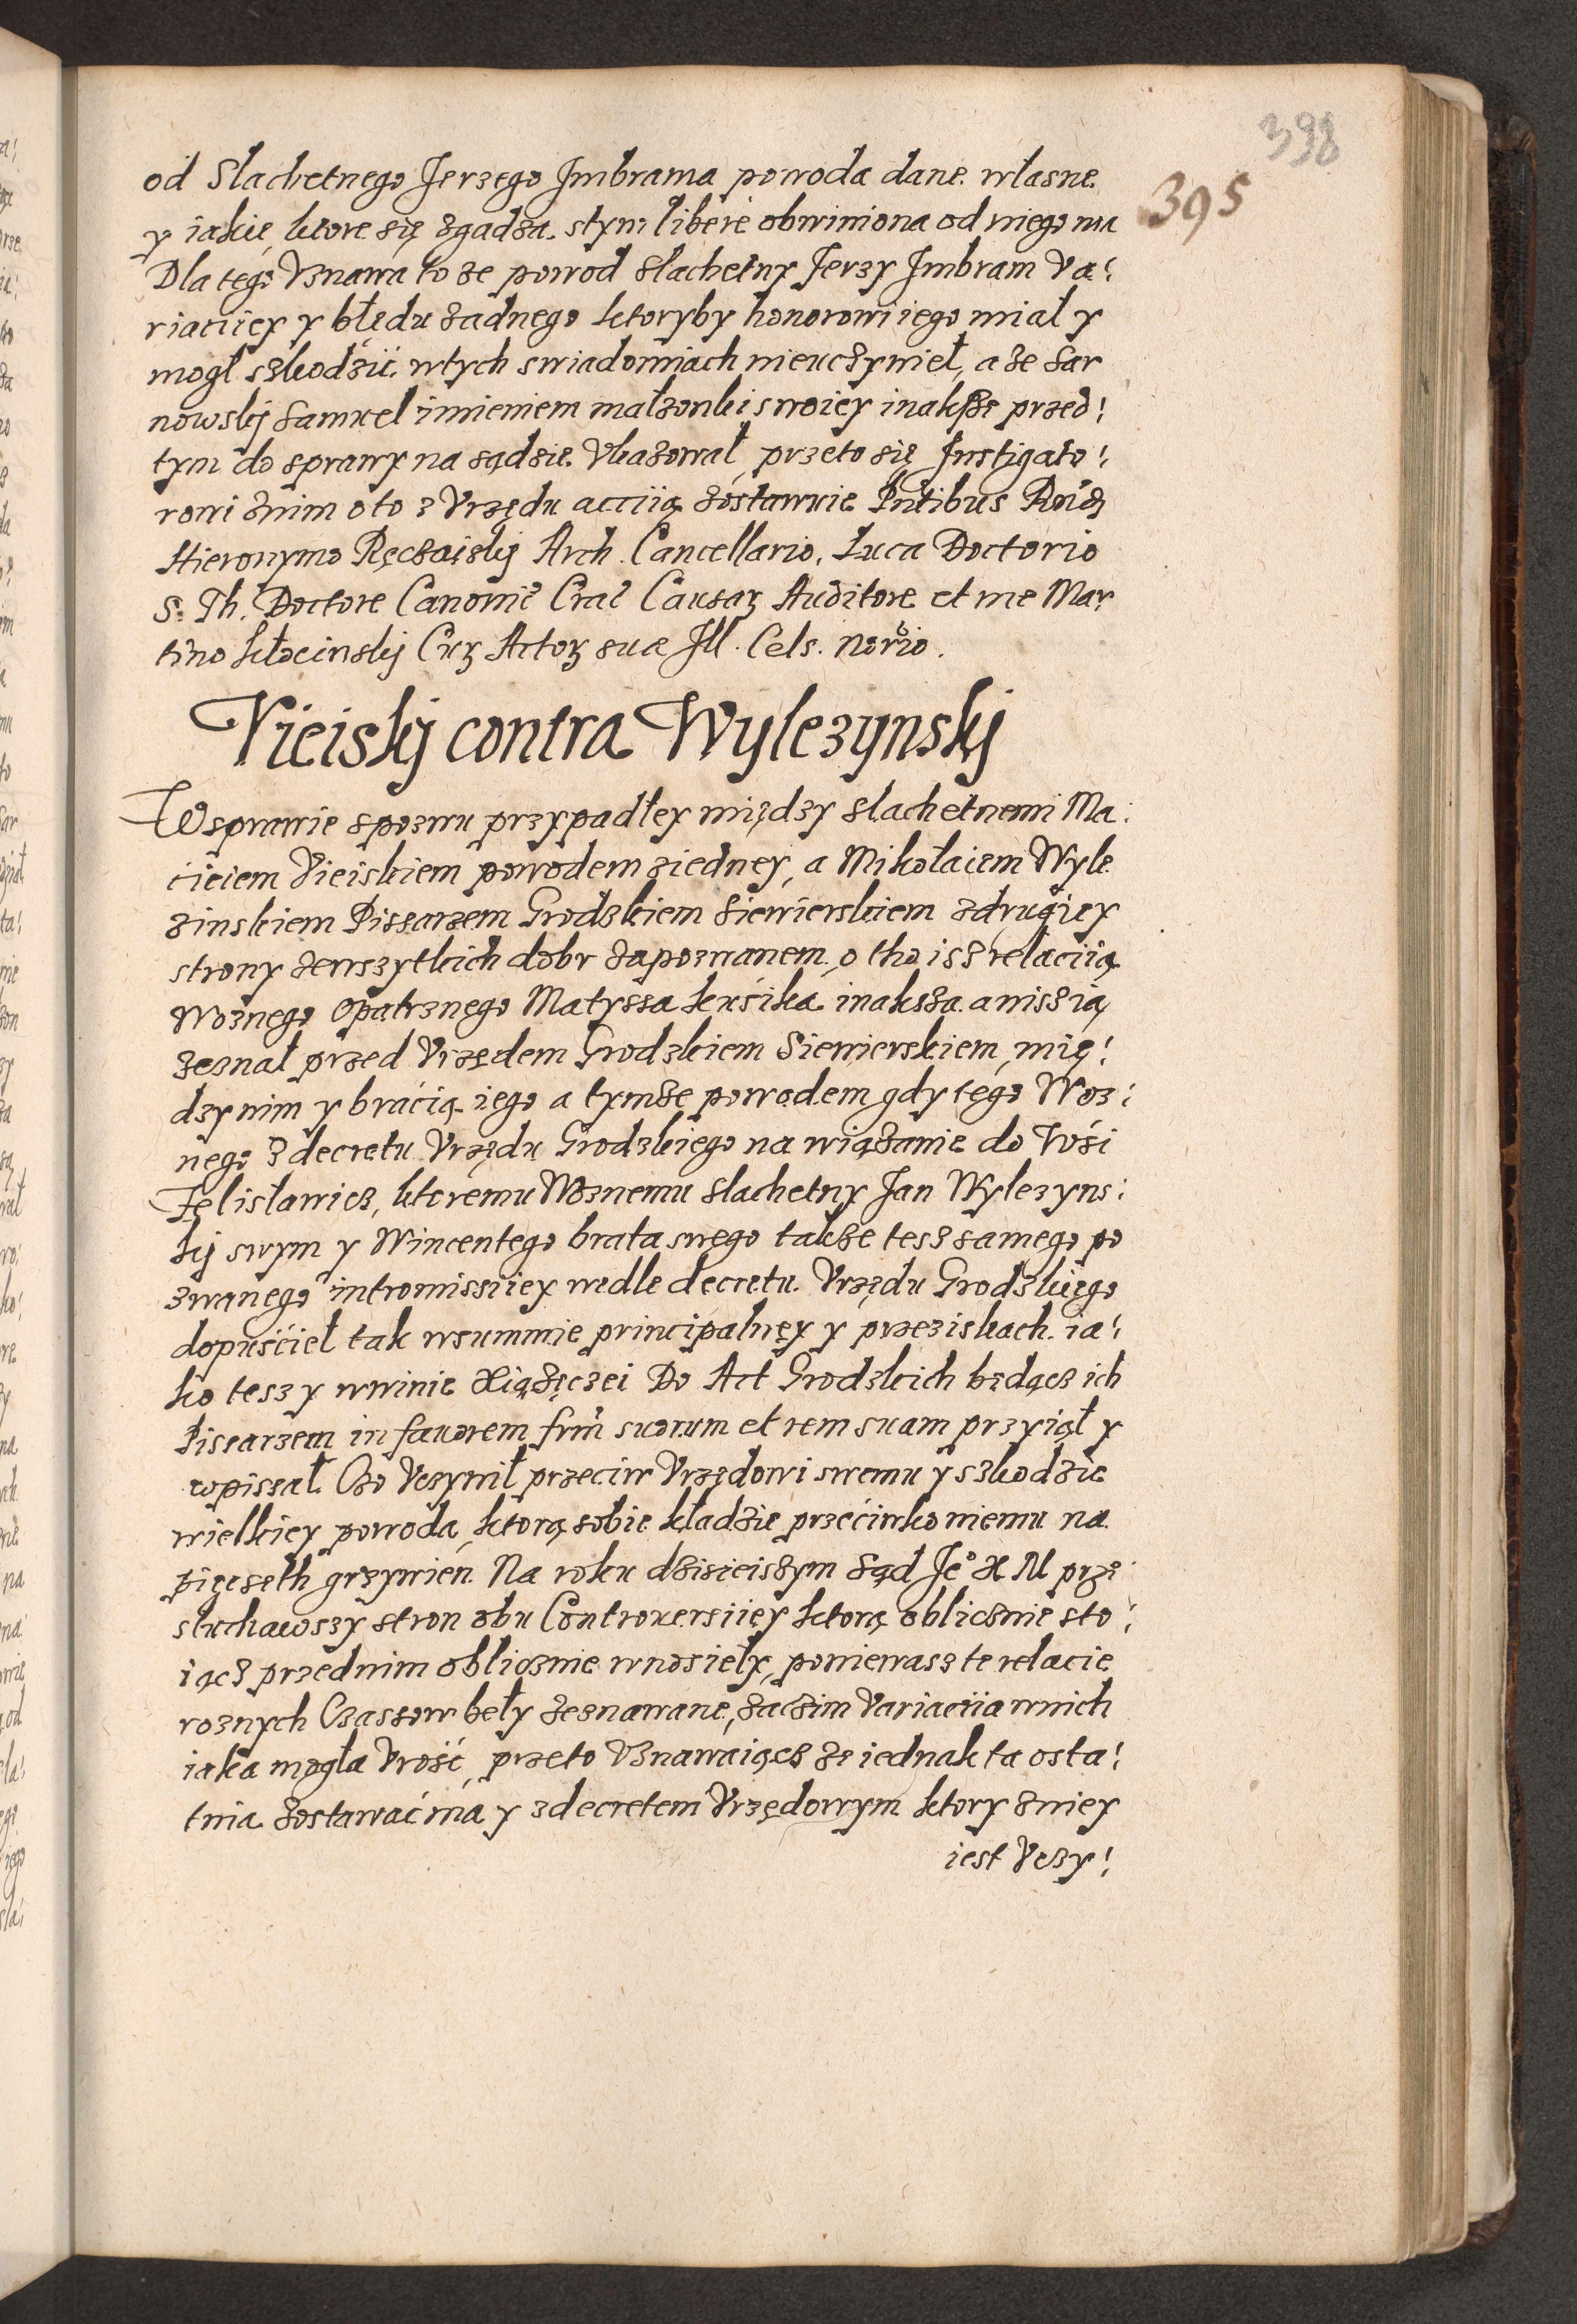 398
395
od Slachetnego Jerzego Jmbrama powoda dane własne
y iakie, ktore się zgadza stym libere obwiniona od niego ma
Dla tego Vznawa to ze powod slachetny Jerzy Jmbram Va¦
riaciiey y błędu zadnego ktoryby honorowi iego miał y
mogł szkodzić wtych swiadomiach nieuczynieł, a ze Sar
nowskij Samuel imieniem małzonki swoiey inaksze przed¦
tym do sprawy na sądzie Vkazował przeto się Jnstigato¦
rowi znim oto z Vrzędu acciią zostawuie Pntibus Rndz
Hieronymo Ręczaiskij Arch. Cancellario, Luca Doctorio
S. Th. Doctore Canonie Crac Causarz Auditore et me Mar
tino kłocinskij Curz Actorz suæ Jll. Cels. norio.
Vieiskij contra Wylezynskij
W sprawie spozwu przypadłey między slachetnemi Ma¦
cieiem Vieiskiem powodem ziedney, a Mikołaiem Wyle
zinskiem Pissarzem Grodzkiem Siewierskiem zdrugiey
strony zewszytkich dobr zapozwanem o tho isz relaciią
Woznego opatrznego Matyssa kusika inaksza aniszią
zeznał przed Vrzędem Grodzkiem Siewierskiem, mię¦
dzy nim y bracią iego a tymze powodem gdy tego Woz¦
nego z decretu Vrzędu Grodzkiego na wiązanie do Wsi
Zelisławicz, ktoremu Woznemu slachetny Jan Wylezyns¦
kij swym y Wincentego brata swego takze tesz samego po
zwanego intromissiiey wedle decretu Vrzędu Grodzkiego
dopuścieł tak wsummie principalney y przeziskach ia¦
ko tesz y wwinie Xiążęczei Do Act Grodzkich będącz ich
Pissarzem in fauorem frm suorum et rem suam przyiął y
wpissał. Czo Vczynił przeciw Vrzędowi swemu y szkodzie
wielkiey powoda, ktorą sobie kładzie przeciwko niemu na
pięcseth grzywien. Na roku dzisieiszym Sąd Je° X M prze
słuchawszy stron obu Controuersiiey ktorą oblicznie sto¦
iącz przednim oblicznie wnosieły, poniewasz te relacie
roznych Czassow beły zeznawane, zaczim Variaciia wnich
iaka mogła Vrość, przeto Vznawaiącz ze iednak ta osta¦
tnia zostawać ma y zdecretem Vrzędowym ktory zniey
iest Vczy¦